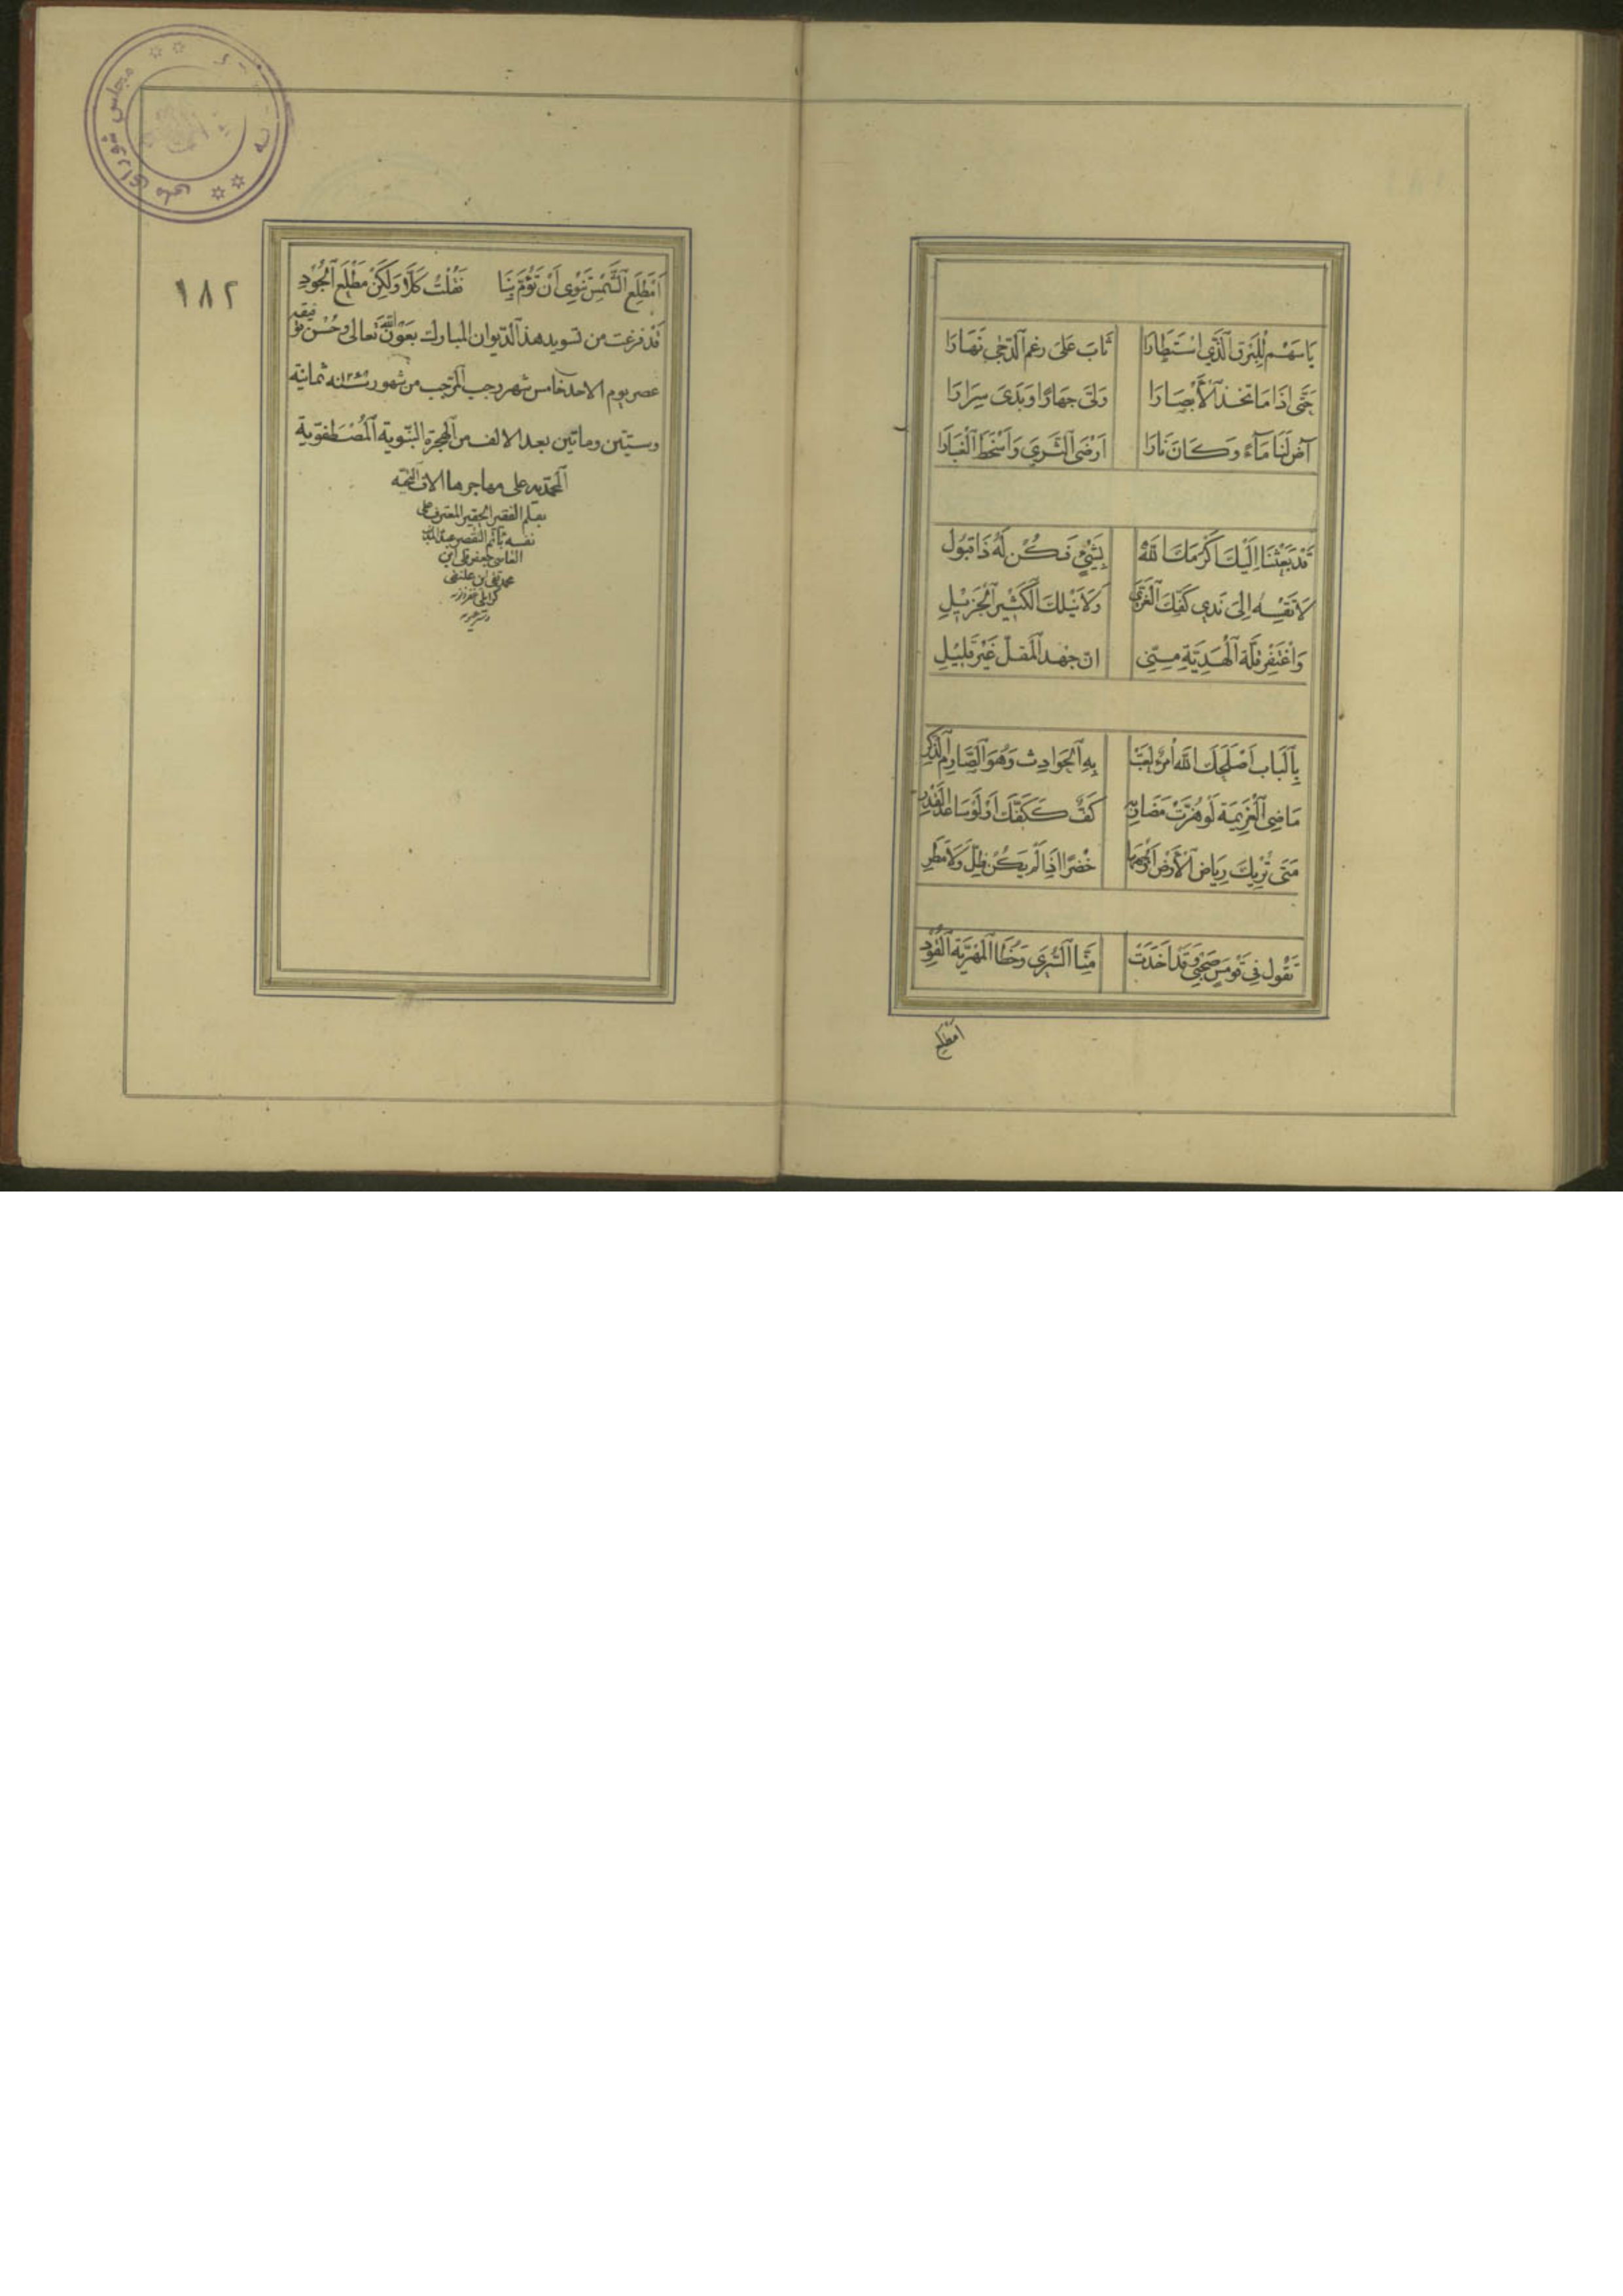 يَا سَهْم لِلْبَرْق ٱلَّذِي اسْتَطَارَا ثَابَ عَلَى رغم ٱلدّجٰي نَهَارَا
حَتَّى اذَا مَا اتخذ ٱلْأَبْصَارَا وَلَّى جهَارًا وَبَدَى سِرَارَا
آض لَنَا مَآءً وَكَانَ نَارَا اَرْضَى الثَّرَى وَاَسْخَطَ ٱلْغُبَارَا
قَدْ بَعَثْنَا اِلَيْكَ اَكْرَمَكَ اللهُ بِشَيْءٍ فَكُنْ لَهُ ذَا قَبُول
لَا تَقِسْهُ اِلى نَدي كَفِّكَ ٱلْغَمْر وَلَا نَيْلِكَ الْكَثِيْر ٱلْجَزِيْلِ
وَاغْتَفِرْ قِلَّة ٱلْهَدِيَّةِ مِنّي انّ جهْد الْمقلّ غَيْرُ قَلِيْلِ
بِالْبَاب اَصْلَحَكَ اللهُ امْرُءٌ لَعِبَتْ بِهِ ٱلْحَوَادِث وَهُوَ الصَّارِم ٱلذَّكَرِ
مَاضِى ٱلْعَزِيْمَة لَوْ هُزَّتْ مَضَارِبه كَفٌّ كَكَفِّكَ اَوْ لَوْ سَاعَدَ الْقَدَرِ
مَتَى تُرِيْكَ رِيَاض ٱلْأَرْضِ خُضْرًا اذَا لَمْ يَكُنْ طَلٌّ وَلَا مَطَرِ
تَقُول فِي قَوْمَسٍ صَحْبِي وَقَدْ اَخَذَتْ مِنَّا السُّرَى وَخُطَا الْمَهْرِيَّة الْقُوْدِ
اَمَطْلِع
١٨٢
اَمَطْلِعَ الشَّمْسِ تَنْوِى اَنْ تَؤُمَّ بِنَا فَقُلْتُ كَلَّا وَلٰكِنْ مَطْلِعَ الْجُوْدِ
قَدْ فرغت من تسويد هذا ٱلدّيوان المبارك بعَوْن اللّٰه تَعالى وحُسْن توفيقه
عصر يوم الاحد خامس شهر رجب ٱلمرَجب من شهور سنه ثمانية
وستّين وماتين بعد الالف من ٱلهجرة النّبّوية ٱلْمُصْطَفَوّية
ٱلمحمّديه على مهاجرها الاف التحيّه
بقلم الفقير الحقير المعترف على
مجلس شورای ملی